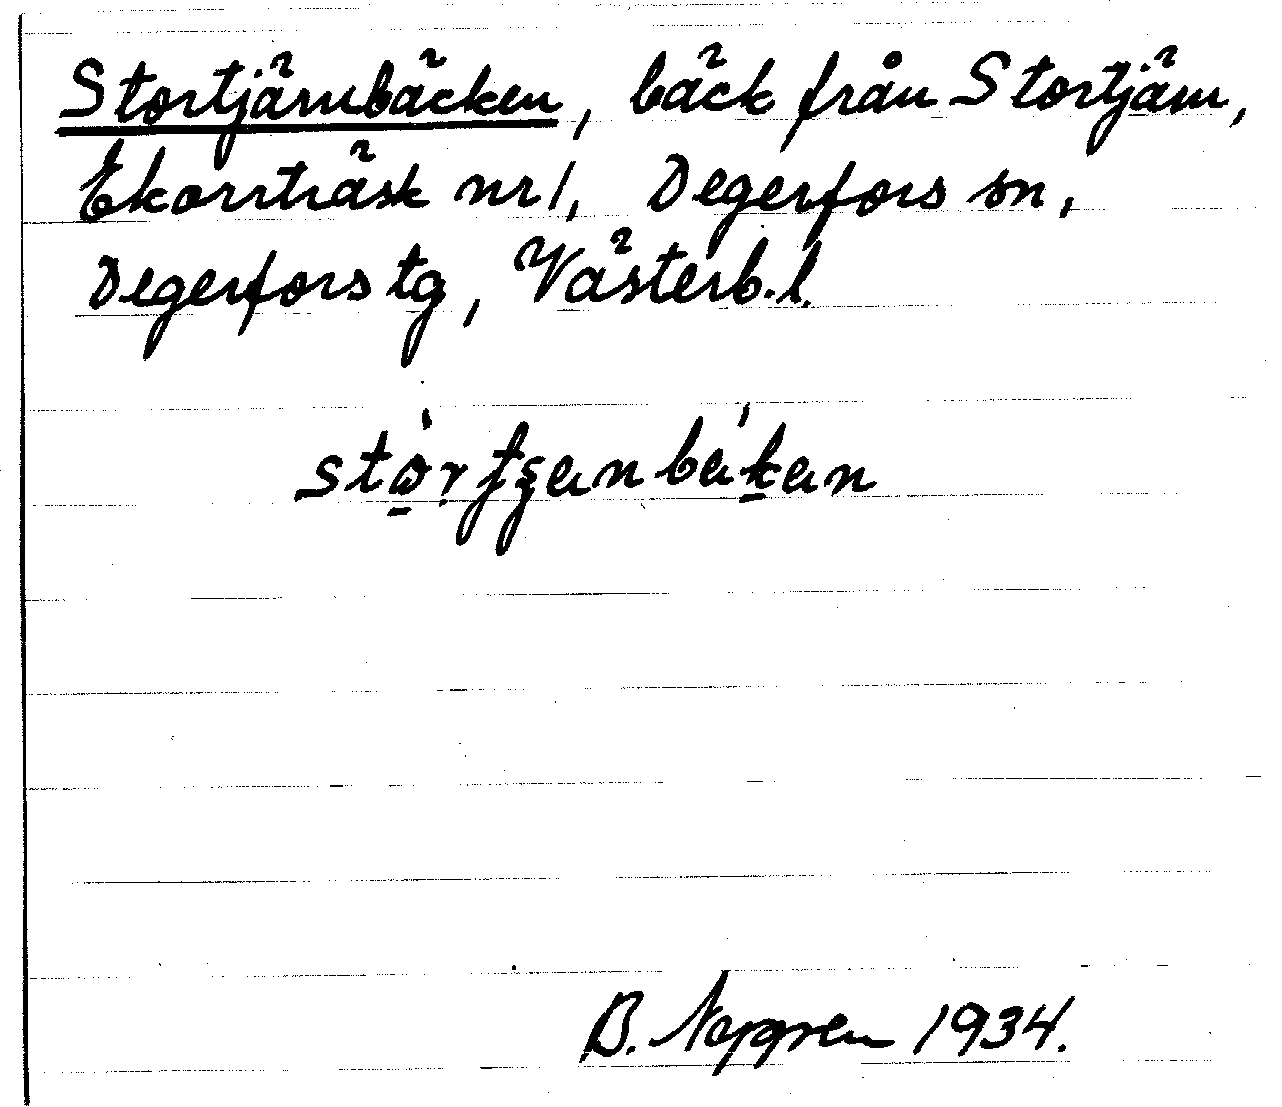 Stortjärnbäcken, bäck från Stortjärn,
Ekorrträsk nr 1, Degerfors sn,
Degerfors tg, Västerb. l.
B. 1934.